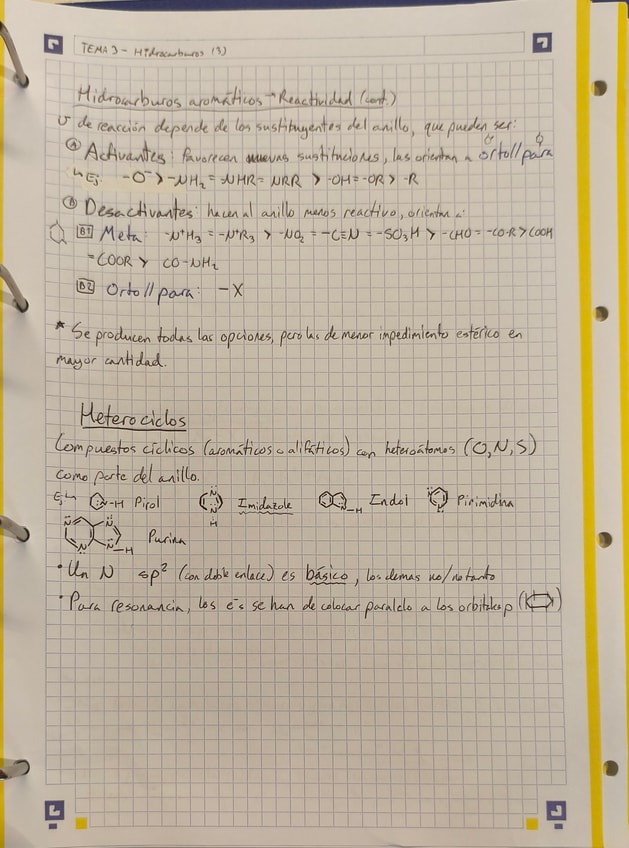 TEMA 3 - Hidrocarburos (3)
Hidrocarburos aromáticos → Reactividad (cont.)
v de reacción depende de los sustituyentes del anillo, que pueden ser:
A Activantes: favorecen nuevas sustituciones, las orientan a orto//para
↳ Ej: -O⁻ > -NH₂ = -NHR = NRR > -OH = -OR > -R
B Desactivantes: hacen al anillo menos reactivo, orientan a:
B1 Meta: -N⁺H₃ = -N⁺R₃ > -NO₂ = -C≡N = -SO₃H > -CHO = -CO-R > COOH
= COOR > CO-NH₂
B2 Orto//para: -X
* Se producen todas las opciones, pero las de menor impedimiento estérico en
mayor cantidad.
Heterociclos
Compuestos cíclicos (aromáticos o alifáticos) con heteroátomos (O, N, S)
como parte del anillo.
Ej↳ N-H Pirol N N H Imidazole N-H Indol N N Pirimidina
N N N N-H Purina
• Un N sp² (con doble enlace) es básico, los demas no/no tanto
• Para resonancia, los e⁻s se han de colocar paralelo a los orbitales p